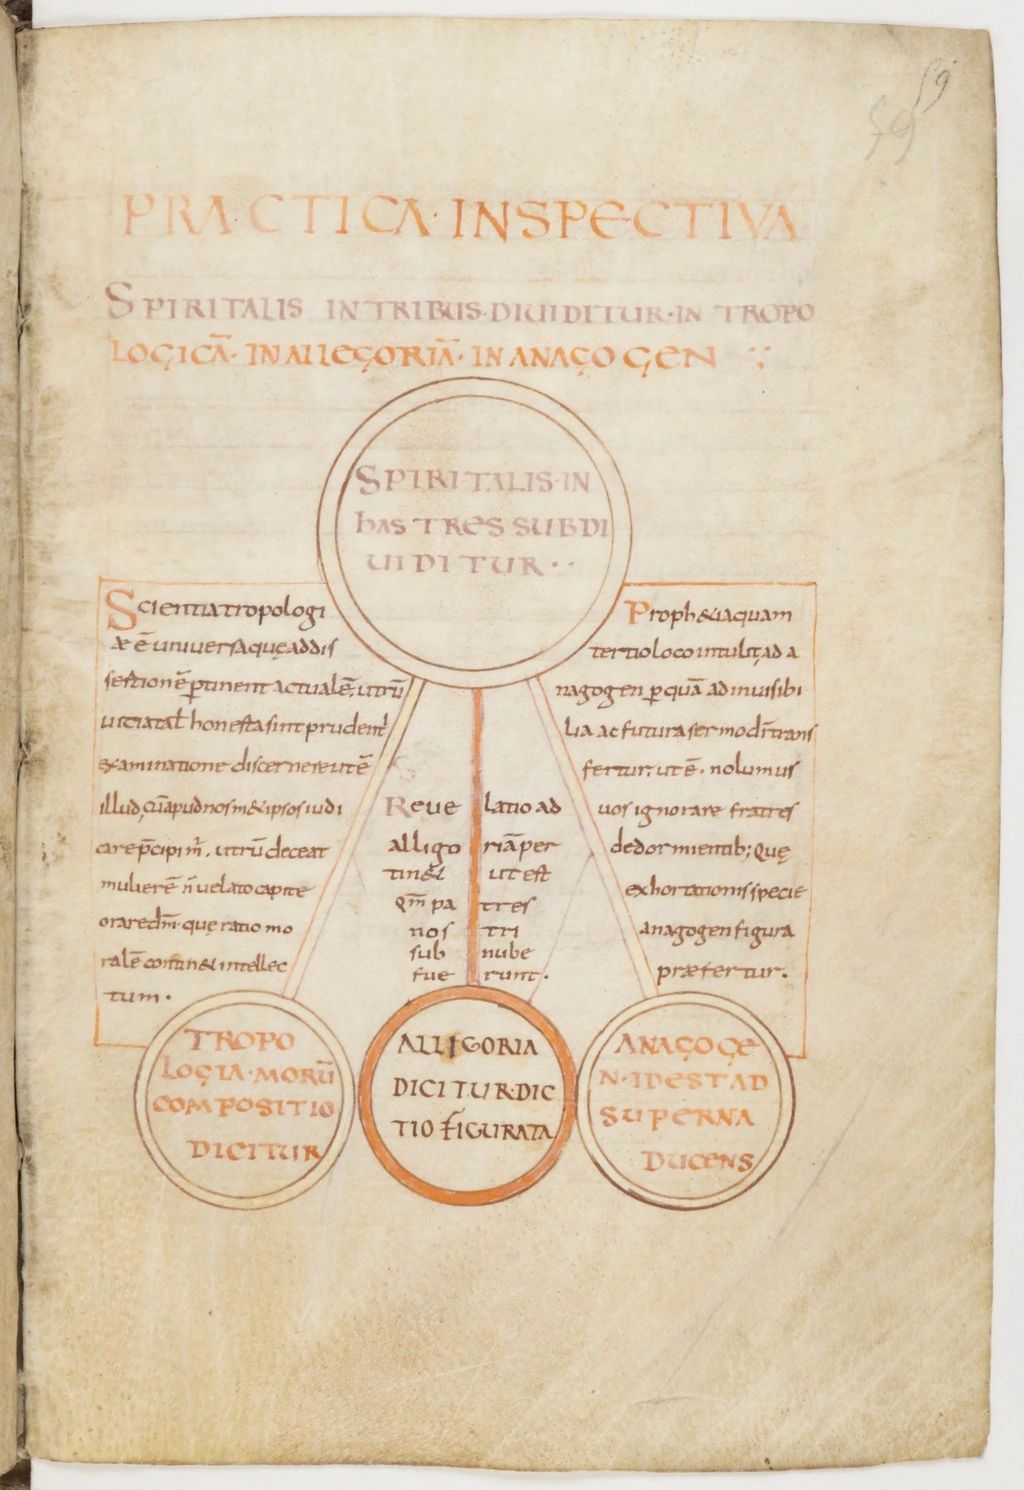 59
59
PRACTICA · INSPECTIVA
SPIRITALIS IN TRIBUS · DIUIDITUR · IN TROPO
LOGICĀ · IN ALLEGORIĀ · IN ANAGOGEN
SPIRITALIS · IN
hAS TRES SUBDI
UIDITUR · ·
Scientia tropologi
æ ē universa quę addis
sertionē ptinent actualē, utrū
honesta sint prudent
examinatione discernere ut ē
illud, cū apud nos m&ipsos iudi
care p̄cipim̄, utrū deceat
mulierē n̄ uelato capite
orare dm̄ · que ratio mo
ralē contin& intellec
tum ·
Reue latio ad
alligo riā per
tin& ut est
Qm̄ pa tres
nos tri
sub nube
fue runt ·
Proph&ia quam
tertio loco intulit, ad a
nagogen p quā ad inuisibi
lia ac futura sermo dī trans
fertur, ut ē · nolumus
uos ignorare fratres
de dormientib; Quę
exhortationis specie
anagogen figura
præfertur.
TROPO
LOGIA · MORŪ
COMPOSITIO
DICITUR
ALLIGORIA
DICITUR · DIC
TIO FIGURATA
ANAGOGE
N · IDEST AD
SUPERNA
DUCENS